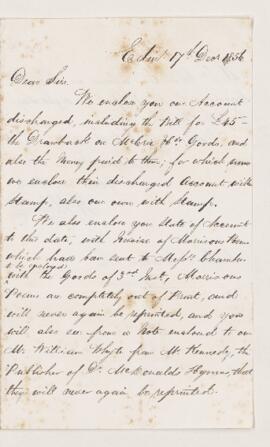 Edinr 17th Decr 1856
Dear Sir
We enclose you our Account
discharged, including the Bill for £45 -
the Drawback on Goods, and
also the Money paid to them; for which sum
we enclose their discharged Account with
Stamp, also our own with Stamp.
We also enclose you State of Account
to this date, with Invoice of Morisons Poems
which have been sent to Messrs Chambers
to be enclosed
with the Goods of 3rd Inst, Morisons
Poems are completely out of Print, and
will never again be reprinted, and you
will also see from a Note enclosed to our
Mr. William Whyte from Mr. Kennedy, the
Publisher of Dr. McDonalds Hymns, that
they will never again be reprinted.